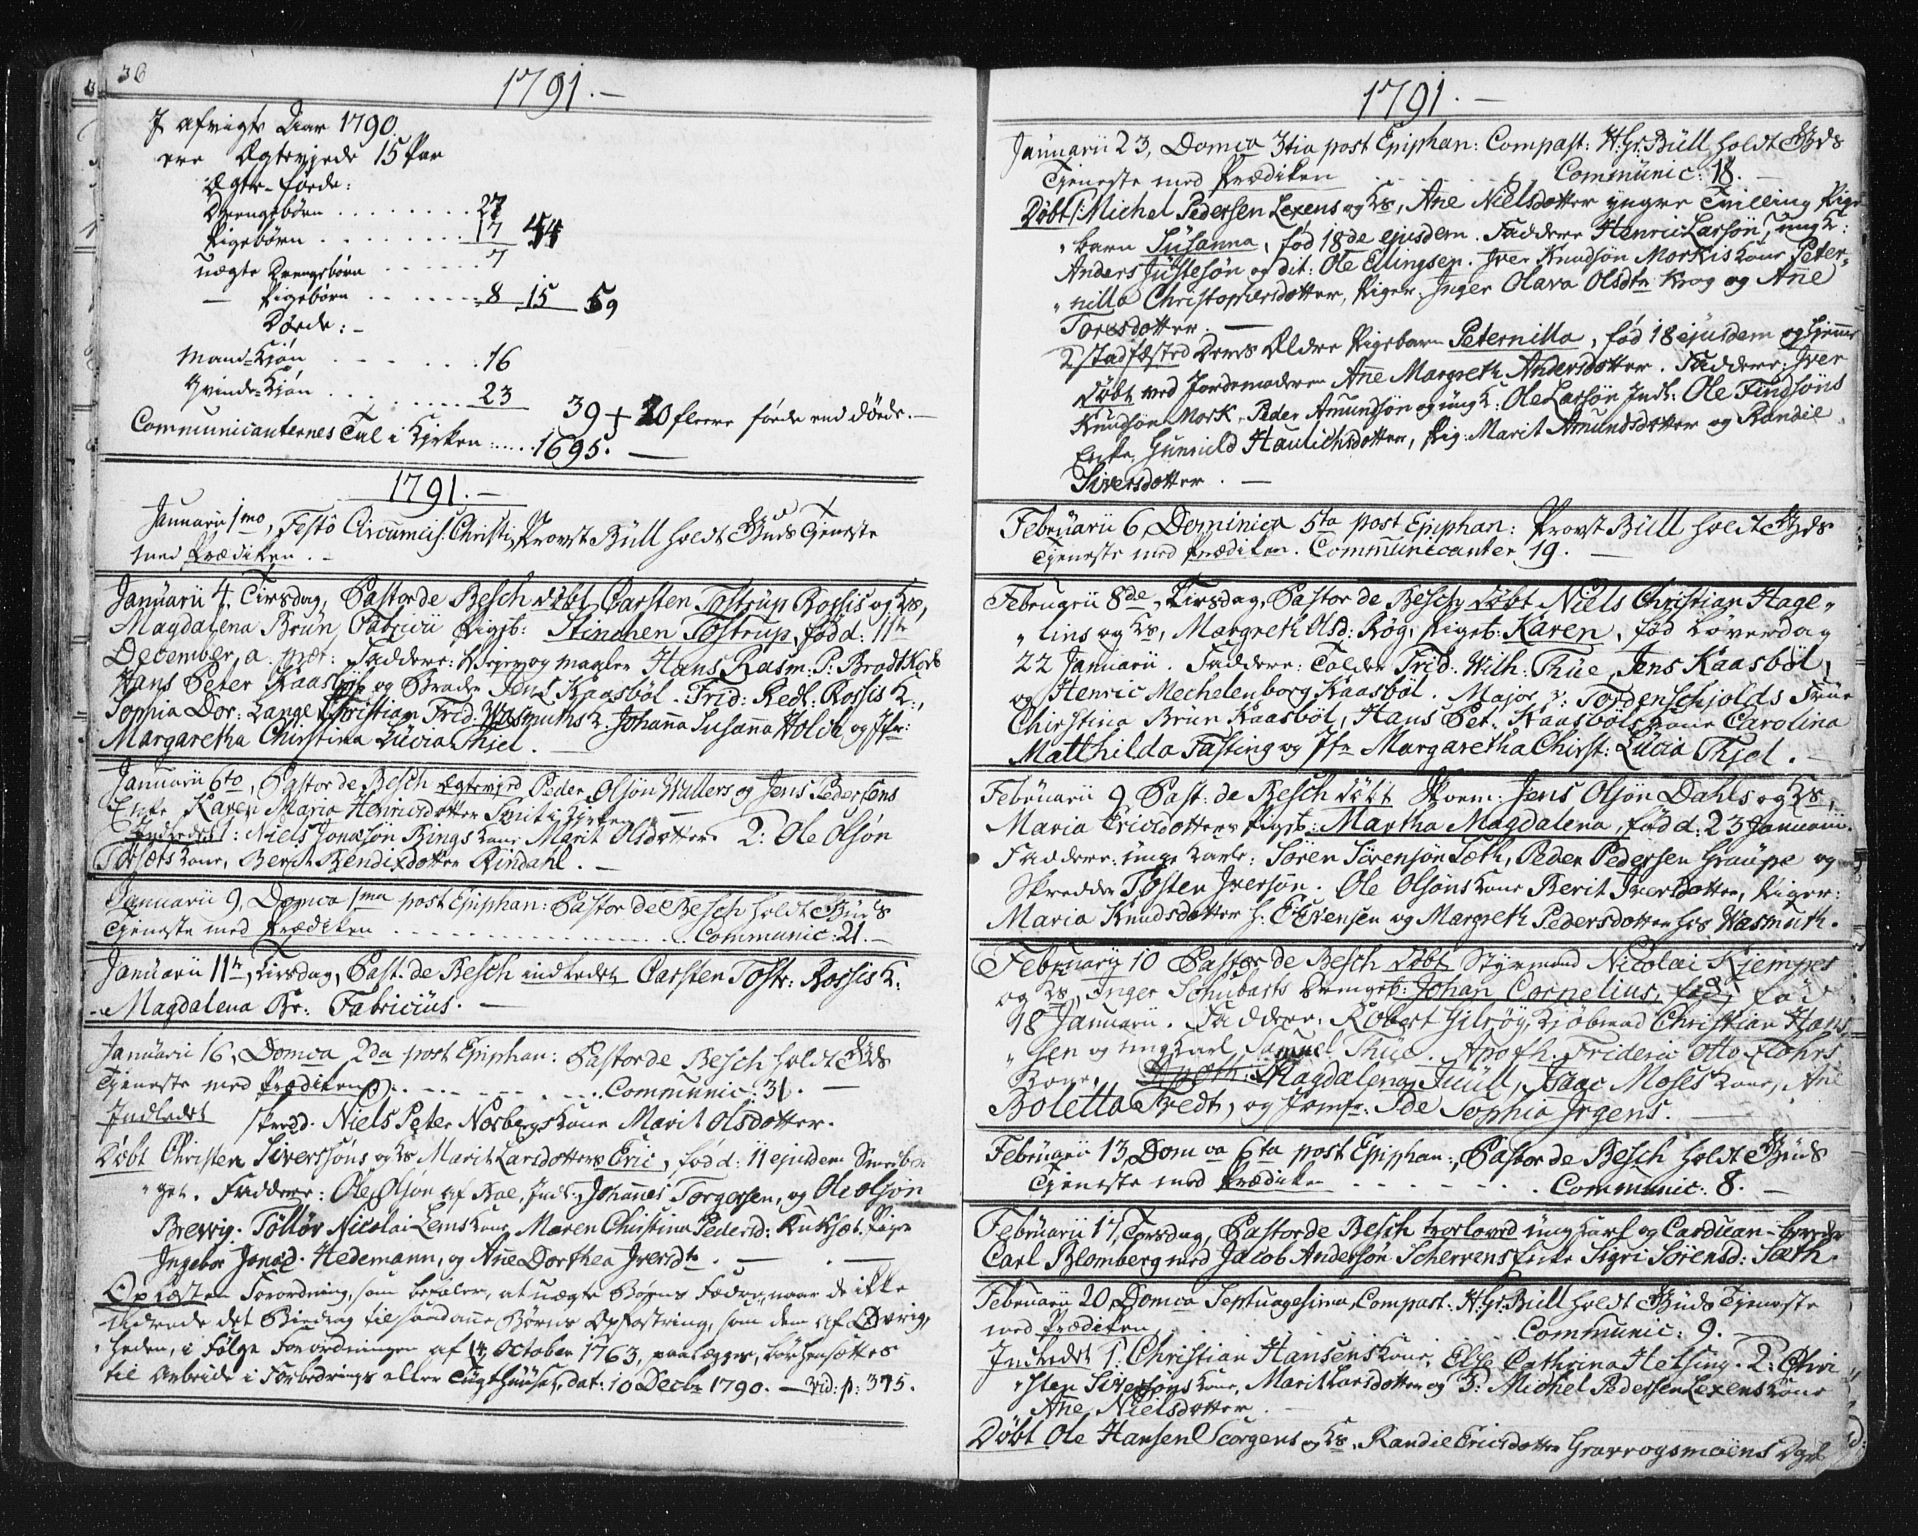 36
1791.—
I afvigte Aar 1790.
ere Ægteviede 15 Par
Ægte-fødte:
Drengebørn . . . . . . . . . 27
Pigebørn . . . . . . . . . 17 44
uægte Drengebørn . . . . . . . 7
— Pigebørn . . . . . . . 8 15 59
Døde:—
Mand-Kiøn . . . . . . . 16
Qvinde-Kiøn . . . . . . . 23
39 + 20 fleere fødde end døde.—
Communicanternes Tal i Kirken ...... 1695.—
1791.—
Januarii 1mo, Festo Circumcis: Christi, Provst Büll holdt Guds Tjeneste
med Prædiken.—
Januarii 4, Tirsdag, Pastor de Besch døbt Carsten Tostrup Rossis og Ks,
Magdalena Brun Fabricii Pigeb: Stinchen Tostrup, fød d: 11te
December, a. præt: Faddere: Veier og maaler Hans Rasm: P: Brodtkorb
Hans Peter Kaasbøl og Broder Jens Kaasbøl. Frid: Redl: Rossis K:,
Sophia Dor: Lange Christian Frid: Wasmuths K: Johanna Susanna Holck og Jfr:
Margaretha Christina Lücia Thiel.—
Januarii 6to, Pastor de Besch Ægteviet Peder Olsøn Wullers og Jens Pedersens
Enke Karen Maria Henricsdotter Smit i Kirken
Indledet 1: Niels Jonasøn Bings Kone Marit Olsdotter 2: Ole Olsøn
Torsæts Kone, Berit Bendixdotter Rindahl.—
Januarii 9, Domca 1ma post Epiphan: Pastor de Besch holdt Guds
Tjeneste med Prædiken . . . . . . . . Communic: 21.—
Januarii 11te, Tirsdag, Past. de Besch indledet Carsten Tostr: Rossis K:
Magdalena Br: Fabricius.—
Januarii 16, Domca 2da post Epiphan: Pastor de Besch holdt Gds
Tjeneste med Prædiken . . . . . . . . Communic: 31.—
Indledet Skredd. Niels Peter Norbergs Kone Marit Olsdotter.
Døbt Christen Siverssøns og Ks Marit Larsdotters Eric, fød d: 11 ejusdem
get. Faddere: Ole Olsøn af Bae, Inds: Johannes Torgersen, og Ole Olsøn
Brevig. Tollør Nicolai Lens Kone, Maren Christina Pedersd: Kuksæt. Pige
Ingebor Jonsd. Hedemann, og Ane Dorthea Iversdtr.—
Oplæst en Forordning, som befaler, at uægte Børns Fædre, naar de ikke
udrede det Bidrag til saadanne Børns Opfostring, som dem af Øvrig,
heden, i Følge Forordningen af 14 October 1763, paalegges, bør hensættes
til Arbeide i Forbedrings eller Tugthüuset, dat: 10 Decbr 1790.— vid: p: 375.
1791.—
Januarii 23, Domca 3tia post Epiphan: Compast: Hr Gr. Büll holdt Gds
Tjeneste med Prædiken . . . . . . . Communic: 18.—
Døbt 1: Michel Pedersen Lexens og Ks, Ane Nielsdotter yngre Tvilling Pige
barn Süsanna, fød 18de ejusdem. Faddere Henric Larsøn, ung K:
Anders Jüstesøn og dit: Ole Ellingsen. Iver Knudsøn Morkis Kone Peter-
nilla Christophersdotter, Piger: Inger Olava Olsdtr Krog og Ane
Toresdotter.—
2 stadfæsted Deres Ældre Pigebarn Peternilla, fød 18 ejusdem og hjemme
døbt ved Jordemoderen Ane Margreth Andersdotter. Faddere: Iver
Knudsøn Mork, Peder Amundsøn og ung K: Ole Larsøn Inds: Ole Findsøns
Enke, Gunnild Hauichsdotter, Pig: Marit Amundsdotter og Randie
Siversdotter.—
Februarii 6, Dominica 5ta post Epiphan: Provst Büll holdt Gds
Tjeneste med Prædiken. Communicanter 19.—
Februarii 8de, Tirsdag, Pastor de Besch døbt Niels Christian Hage-
lins og Ks, Margreth Olsd: Røg, Pigeb: Karen, fød Løverdag
22 Januarii. Faddere: Tolder Frid: Wilh: Thüe, Jens Kaasbøl,
og Henric Mechelenborg Kaasbøl. Major v: Tordenschjolds Früe
Chirstina Brün Kaasbøl, Hans Pet: Kaasbøls Kone Carolina
Matthilda Fasting og Jfr Margaretha Chirst: Lücia Thiel.—
Februarii 9 Past: de Besch døbt Jens Olsøn Dahls og Ks,
Maria Ericsdotters Pigeb: Martha Magdalena, fød d: 23 Januarii.
Faddere: unge Karle: Søren Sørensøn Sæth, Peder Pedersen Graüpe og
Skredder Tosten Iversøn. Ole Olsøns Kone Berit Iversdotter, Piger:
Maria Knudsdotter h. Sørensen og Margreth Pedersdotter hos Wasmuth.
Februarii 10 Pastor de Besch døbt Styrmand Nicolai Kjempes
og Ks, Inger Schubarts Drengeb: Johan Cornelius, fød
18 Januarii. Faddere: Robert Gilroy, Kjøbmad Christian Hans
sen og ung Karl Samuel Thüe. Apoth: Frideric Otto Flohrs
Kone, Magdalena Juüll, Isaac Moses Kone, Ane
Boletta Bredt, og Jomfr: Ide Sophia Irgens.—
Februarii 13, Domca 6ta post Epiphan:, Pastor de Besch holdt Güds
Tjeneste med Prædiken . . . . . . . Communic: 8.—
Februarii 17, Torsdag, Pastor de Besch trolovd ung Karl og Carduan-bereder
Carl Blomberg med Jacob Andersøn Schervens Enke Sigri Sørensd: Sæth.
Februarii 20, Domca Septuagesima, Compast: Hr Gr. Büll holdt Guds Tjeneste
med Prædiken . . . . . . . Communic: 9.—
Indledet 1: Christian Hansens Kone, Else Cathrina Helsing. 2: Chri
sten Siversøns Kone, Marit Larsdotter og 3: Michel Pedersen Lexens Kone
Ane Nielsdotter.—
Døbt Ole Hansen Scorgens og Ks, Randie Ericsdotter Gravrogsmoens